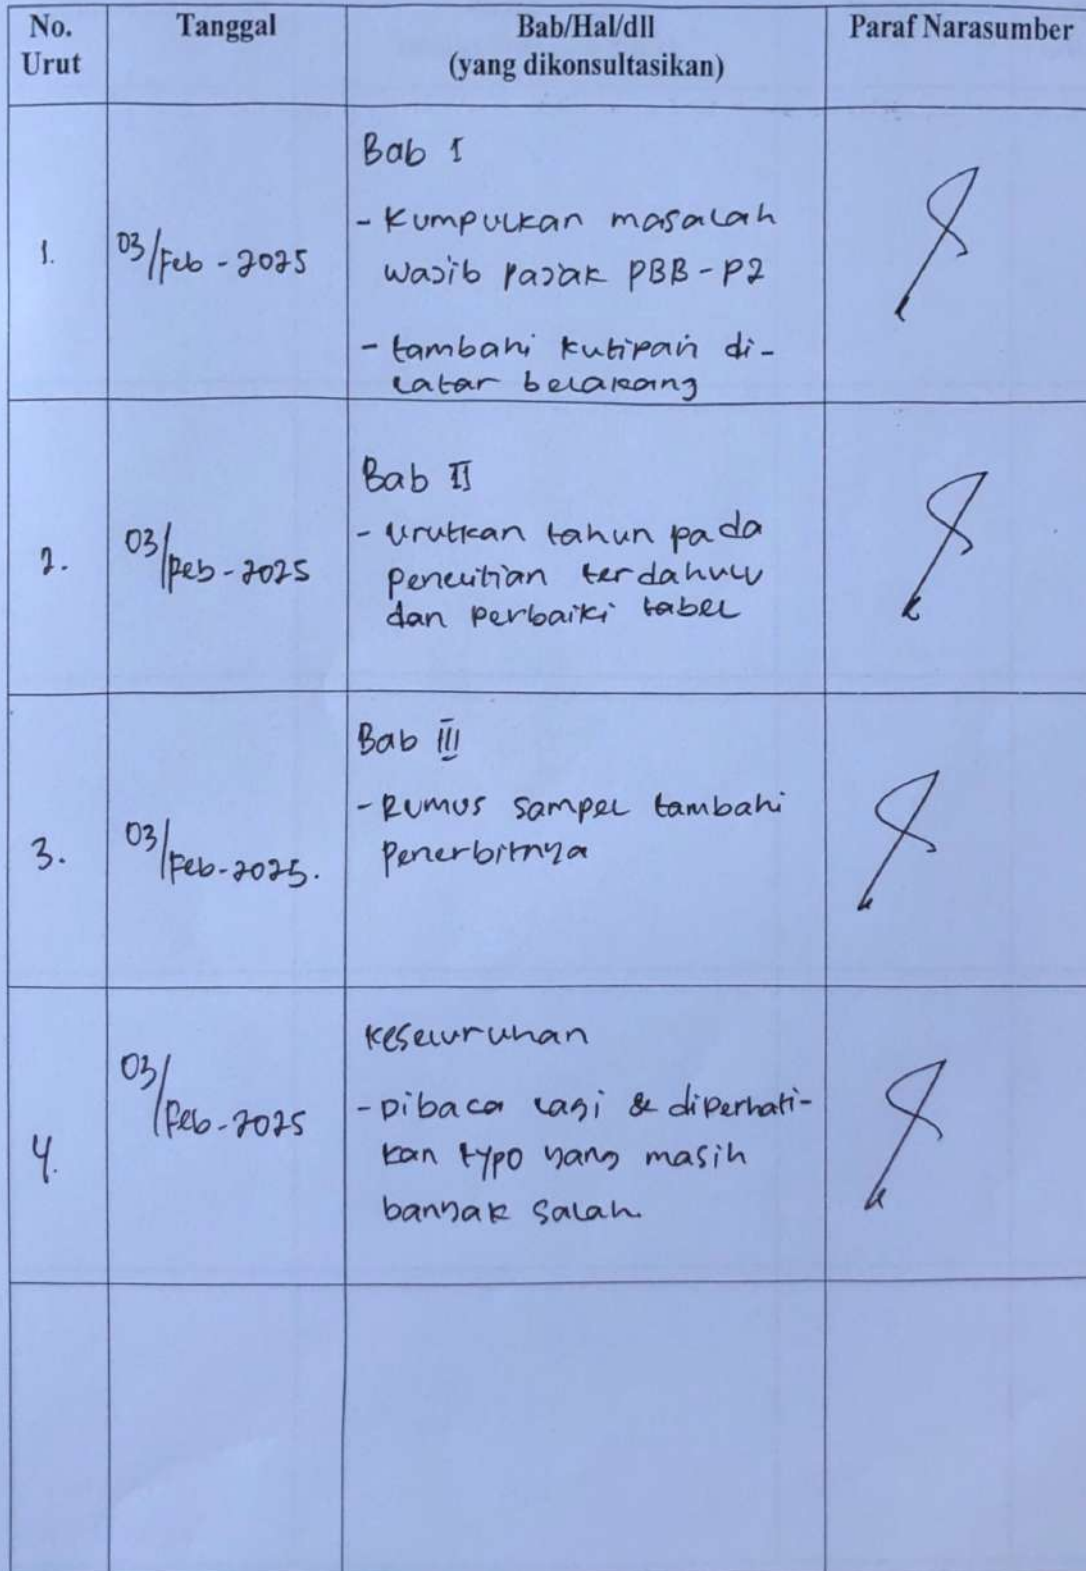 No. Urut
Tanggal
Bab/Hal/dll
(yang dikonsultasikan)
Paraf Narasumber
1.
03/Feb - 2025
Bab I
- Kumpulkan masalah
wajib pajak PBB-P2
- tambahi kutipan di-
latar belakang
2.
03/Feb - 2025
Bab II
- Urutkan tahun pada
penelitian terdahulu
dan perbaiki tabel
3.
03/Feb-2025.
Bab III
- Rumus sampel tambahi
Penerbitnya
4.
03/Feb-2025
Keseluruhan
- Dibaca lagi & diperhati-
kan typo yang masih
banyak salah.